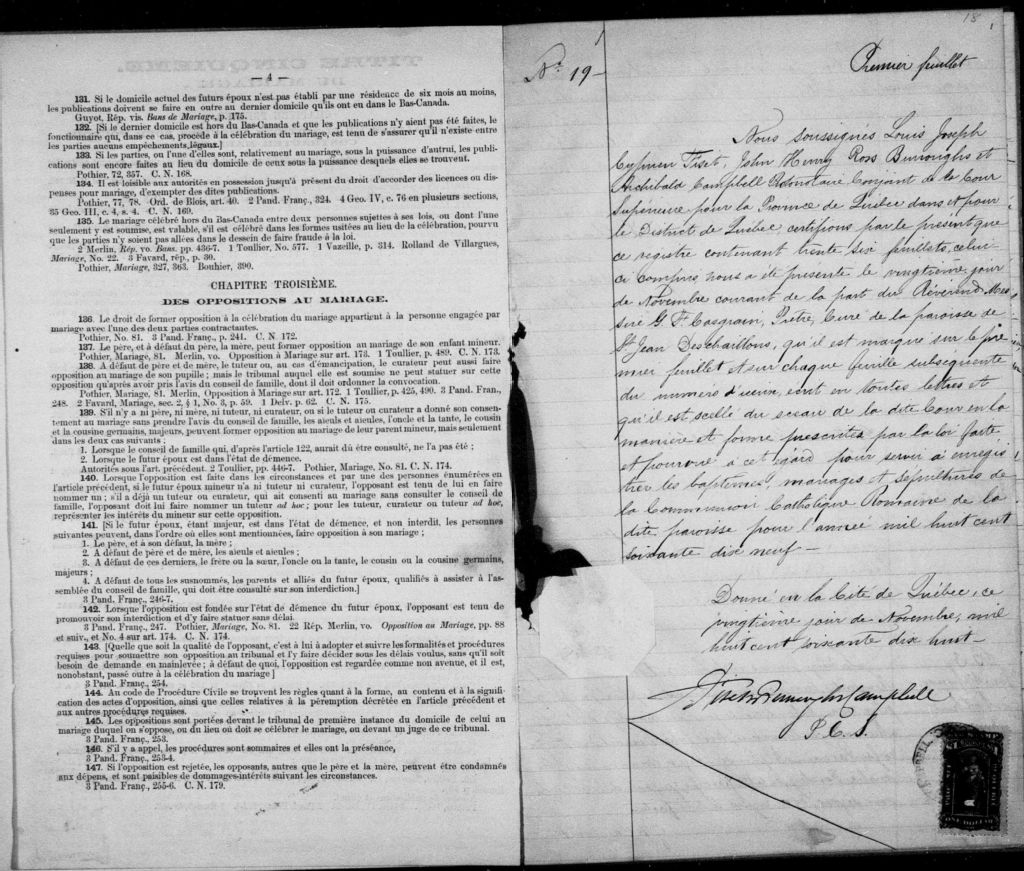 — 4 —
131. Si le domicile actuel des futurs époux n'est pas établi par une résidence de six mois au moins,
les publications doivent se faire en outre au dernier domicile qu'ils ont eu dans le Bas-Canada.
Guyot, Rép. vis. Bans de Mariage, p. 175.
132. [Si le dernier domicile est hors du Bas-Canada et que les publications n'y aient pas été faites, le
fonctionnaire qui, dans ce cas, procède à la célébration du mariage, est tenu de s'assurer qu'il n'existe entre
les parties aucuns empêchements légaux.]
133. Si les parties, ou l'une d'elles sont, relativement au mariage, sous la puissance d'autrui, les publi-
cations sont encore faites au lieu du domicile de ceux sous la puissance desquels elles se trouvent.
Pothier, 72, 357. C. N. 168.
134. Il est loisible aux autorités en possession jusqu'à présent du droit d'accorder des licences ou dis-
penses pour mariage, d'exempter des dites publications.
Pothier, 77, 78. Ord. de Blois, art. 40. 2 Pand. Franç., 324. 4 Geo. IV, c. 76 en plusieurs sections,
35 Geo. III, c. 4, s. 4. C. N. 169.
135. Le mariage célébré hors du Bas-Canada entre deux personnes sujettes à ses lois, ou dont l'une
seulement y est soumise, est valable, s'il est célébré dans les formes usitées au lieu de la célébration, pourvu
que les parties n'y soient pas allées dans le dessein de faire fraude à la loi.
2 Merlin, Rép. vo. Bans. pp. 436-7. 1 Toullier, No. 577. 1 Vazeille, p. 314. Rolland de Villargues,
Mariage, No. 22. 3 Favard, rép., p. 30.
Pothier, Mariage, 327, 363. Bouhier, 390.
CHAPITRE TROISIÈME.
DES OPPOSITIONS AU MARIAGE.
136. Le droit de former opposition à la célébration du mariage appartient à la personne engagée par
mariage avec l'une des deux parties contractantes.
Pothier, No. 81. 3 Pand. Franç., p. 241. C. N. 172.
137. Le père, et à défaut du père, la mère, peut former opposition au mariage de son enfant mineur.
Pothier, Mariage, 81. Merlin, vo. Opposition à Mariage sur art. 173. 1 Toullier, p. 489. C. N. 173.
138. A défaut de père et de mère, le tuteur ou, au cas d'émancipation, le curateur peut aussi faire
opposition au mariage de son pupile ; mais le tribunal auquel elle est soumise ne peut statuer sur cette
opposition qu'après avoir pris l'avis du conseil de famille, dont il doit ordonner la convocation.
Pothier, Mariage, 81. Merlin, Opposition à Mariage sur art. 172. 1 Toullier, p. 425, 490. 3 Pand. Fran.,
248. 2 Favard, Mariage, sec. 2, § 1, No. 3, p. 59. 1 Delv. p. 62. C. N. 175.
139. S'il n'y a ni père, ni mère, ni tuteur, ni curateur, ou si le tuteur ou curateur a donné son consen-
tement au mariage sans prendre l'avis du conseil de famille, les aieuls et aieules, l'oncle et la tante, le cousin
et la cousine germains, majeurs, peuvent former opposition au mariage de leur parent mineur, mais seulement
dans les deux cas suivants :
1. Lorsque le conseil de famille qui, d'après l'article 122, aurait dû être consulté, ne l'a pas été ;
2. Lorsque le futur époux est dans l'état de démence.
Autorités sous l'art. précédent. 2 Toullier, pp. 446-7. Pothier, Mariage, No. 81. C. N. 174.
140. Lorsque l'opposition est faite dans les circonstances et par une des personnes énumérées en
l'article précédent, si le futur époux mineur n'a ni tuteur ni curateur, l'opposant est tenu de lui en faire
nommer un ; s'il a déjà un tuteur ou curateur, qui ait consenti au mariage sans consulter le conseil de
famille, l'opposant doit lui faire nommer un tuteur ad hoc ; pour les tuteur, curateur ou tuteur ad hoc,
représenter les intérêts du mineur sur cette opposition.
141. [Si le futur époux, étant majeur, est dans l'état de démence, et non interdit, les personnes
suivantes peuvent, dans l'ordre où elles sont mentionnées, faire opposition à son mariage ;
1. Le père, et à son défaut, la mère ;
2. A défaut de père et de mère, les aieuls et aieules ;
3. A défaut de ces derniers, le frère ou la sœur, l'oncle ou la tante, le cousin ou la cousine germains,
majeurs ;
4. A défaut de tous les susnommés, les parents et alliés du futur époux, qualifiés à assister à l'as-
semblée du conseil de famille, qui doit être consulté sur son interdiction.]
3 Pand. Franç., 246-7.
142. Lorsque l'opposition est fondée sur l'état de démence du futur époux, l'opposant est tenu de
promouvoir son interdiction et d'y faire statuer sans délai.
3 Pand. Franç., 247. Pothier, Mariage, No. 81. 22 Rép. Merlin, vo. Opposition au Mariage, pp. 88
et suiv., et No. 4 sur art. 174. C. N. 174.
143. [Quelle que soit la qualité de l'opposant, c'est à lui à adopter et suivre les formalités et procédures
requises pour soumettre son opposition au tribunal et l'y faire décider sous les délais voulus, sans qu'il soit
besoin de demande en mainlevée ; à défaut de quoi, l'opposition est regardée comme non avenue, et il est,
nonobstant, passé outre à la célébration du mariage]
3 Pand. Franç., 254.
144. Au code de Procédure Civile se trouvent les règles quant à la forme, au contenu et à la signifi-
cation des actes d'opposition, ainsi que celles relatives à la péremption décrétée en l'article précédent et
aux autres procédures requises.
145. Les oppositions sont portées devant le tribunal de première instance du domicile de celui au
mariage duquel on s'oppose, ou du lieu où doit se célébrer le mariage, ou devant un juge de ce tribunal.
3 Pand. Franç., 253.
146. S'il y a appel, les procédures sont sommaires et elles ont la préséance,
3 Pand. Franç., 253-4.
147. Si l'opposition est rejetée, les opposants, autres que le père et la mère, peuvent être condamnés
aux dépens, et sont paisibles de dommages-intérêts suivant les circonstances.
3 Pand. Franç., 255-6. C. N. 179.
18
No. 19
Premier feuillet
Nous soussignés Louis Joseph
Cyprien Fiset, John Henry Ross Burroughs et
Archibald Campbell Protonotaire Conjoint de la Cour
Supérieure pour la Province de Québec dans et pour
le District de Québec certifions par le présent que
ce registre contenant trente six feuillets, celui-
ci compris, nous a été présenté le vingtième jour
de Novembre courant de la part du Révérend Mes
sire G. F. Casgrain, Prêtre, Curé de la paroisse de
St Jean Deschaillons, qu'il est marqué sur le pre
mier feuillet et sur chaque feuille subséquente
du numéro d'icelui, écrit en toutes lettres et
qu'il est scellé du sceau de la dite Cour en la
manière et forme prescrites par la loi faite
et pourvue à cet égard pour servir à enregis
trer les baptêmes, mariages et sépultures de
la Communion Catholique Romaine de la
dite paroisse pour l'année mil huit cent
soixante dix neuf —
Donné en la Cité de Québec, ce
vingtième jour de Novembre, mil
huit cent soixante dix huit —
Fiset Burroughs Campbell
P. C. S.
ONE DOLLAR